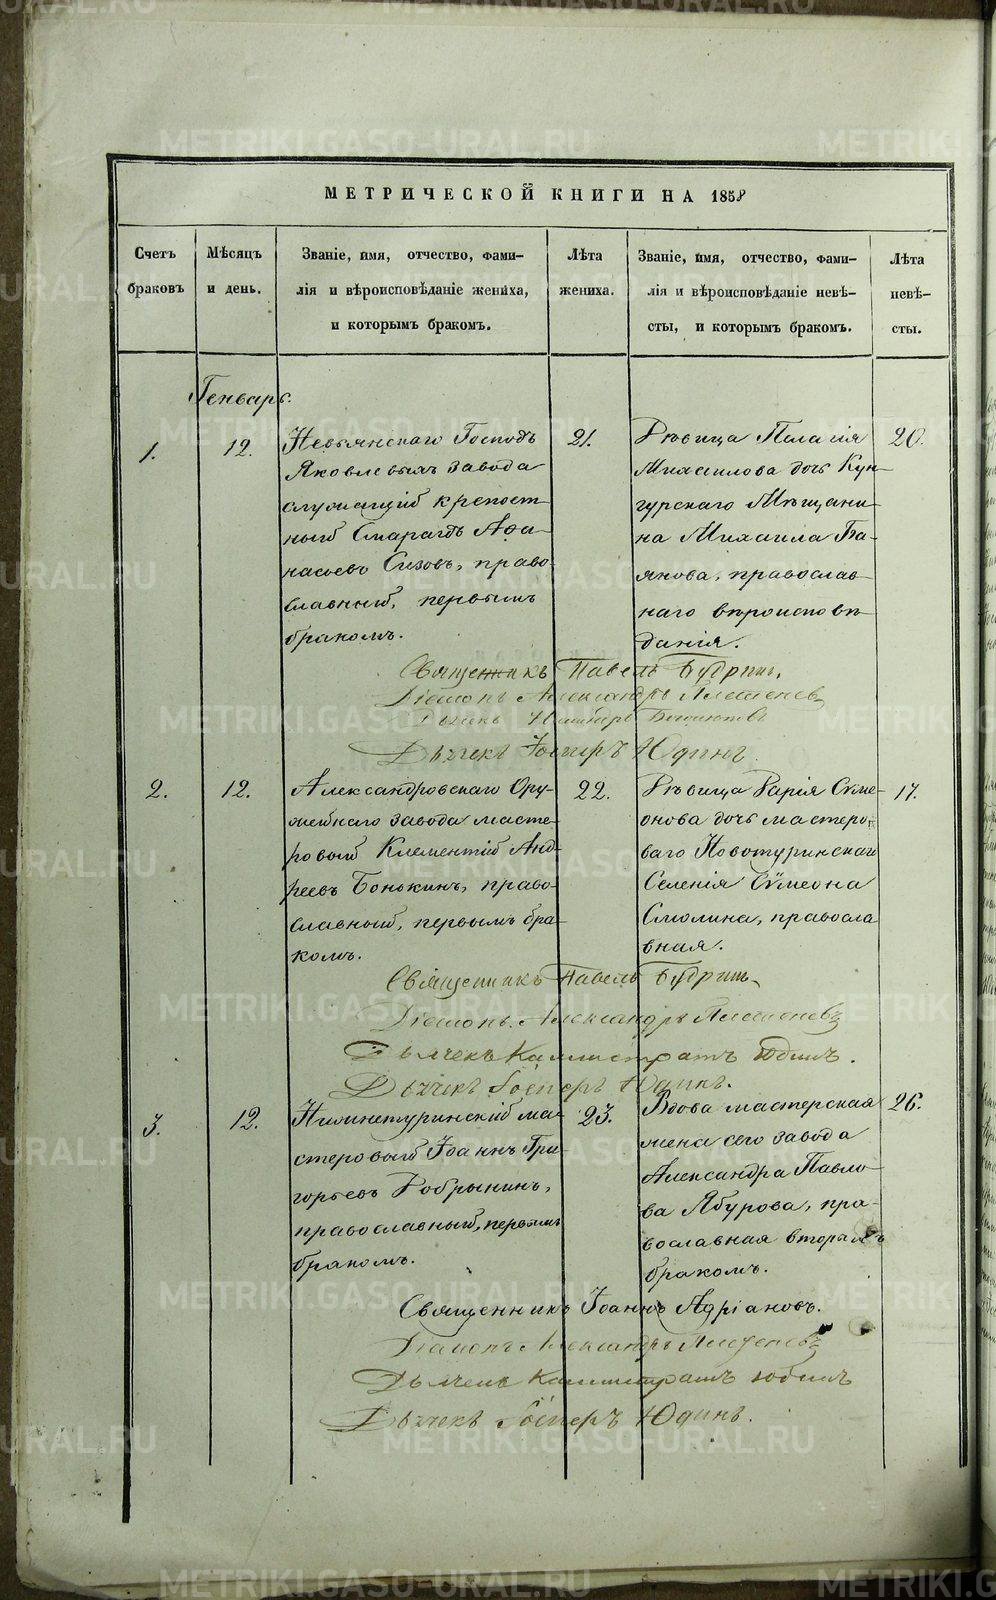 METRIKI.GASO-URAL.RU
МЕТРИЧЕСКОЙ КНИГИ НА 1858
Счетъ браковъ
Мѣсяцъ и день.
Званіе, имя, отчество, фами-
лія и вѣроисповѣданіе жениха,
и которымъ бракомъ.
Лѣта жениха.
Званіе, имя, отчество, фами-
лія и вѣроисповѣданіе невѣ-
сты, и которымъ бракомъ.
Лѣта невѣ-
сты.
Генварь.
1.
12.
Невьянскаго Господъ
Яковлевыхъ завода
служащій крепост-
ный Смарагдъ Афа-
насьевъ Сизовъ, право-
славный, первымъ
бракомъ.
21.
Дѣвица Пелагія
Михаилова дочь Кун-
гурскаго Мѣщани-
на Михаила Ба-
янова, православ-
наго вѣроисповѣ-
данія.
20.
Священникъ Павелъ Будринъ.
Діаконъ Александръ Плетеневъ
Дьячекъ
Дьячекъ Юдинъ
2.
12.
Александровскаго Ору-
жейнаго завода масте-
ровый Климентій Анд-
реевъ Бонькинъ, право-
славный, первымъ бра-
комъ.
22.
Дѣвица Дарія Сѵме-
онова дочь мастеро-
ваго Новотуринскаго
Селенія Сѵмеона
Смолина, правосла
вная.
17.
Священникъ Павелъ Будринъ
Діаконъ Александръ Плетеневъ
Дьячекъ Каллистратъ Юдинъ.
Дьячекъ Юдинъ.
3.
12.
Нижнетуринскій ма-
стеровый Іоаннъ Гри-
горьевъ Добрынинъ,
православный, первымъ
бракомъ.
23.
Вдова мастерская
жена сего завода
Александра Павло-
ва Ябурова, пра-
вославная вторымъ
бракомъ.
26.
Священникъ Іоаннъ Адріановъ.
Діаконъ Александръ Плетеневъ
Дьячекъ Каллистратъ Юдинъ
Дьячекъ Юдинъ.